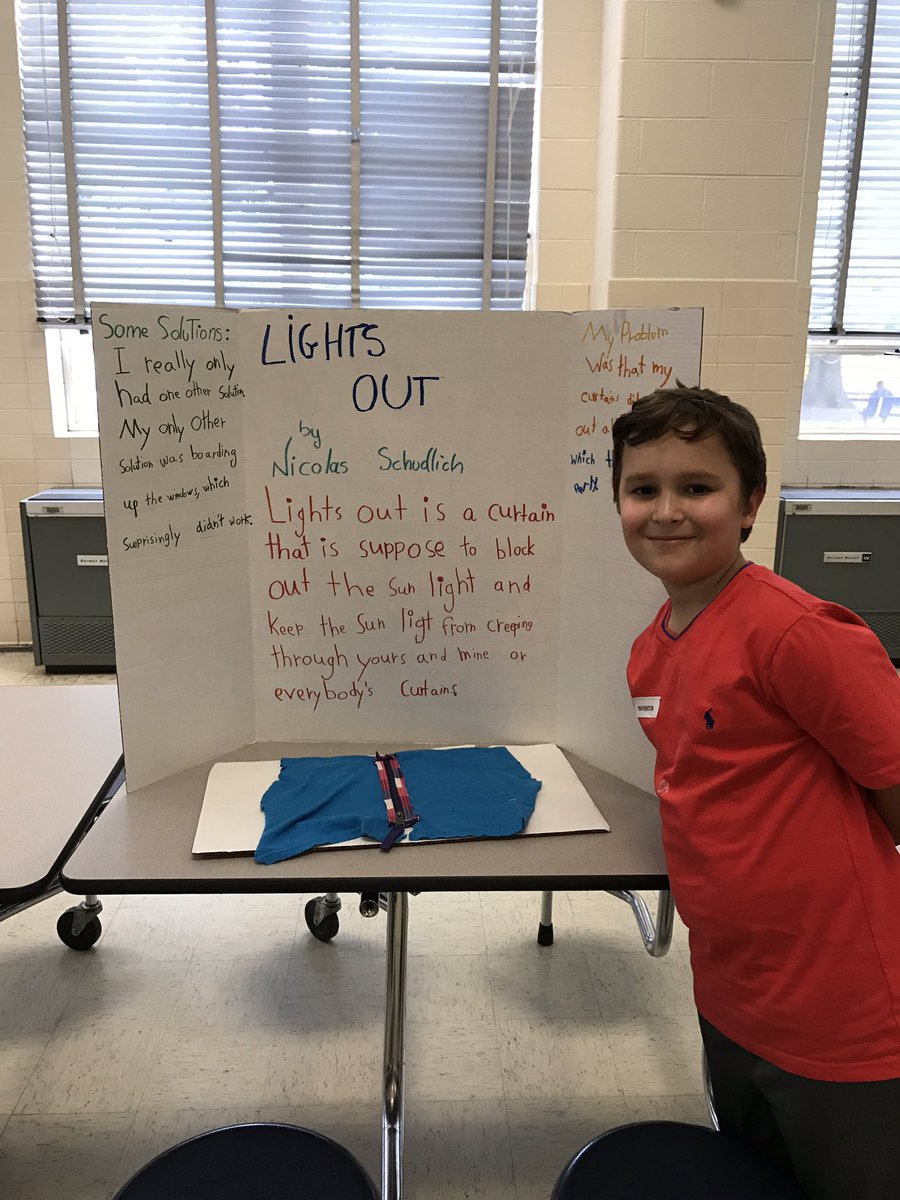 Some Solutions:
I really only
had one other Solution
My only Other
Solution was boarding
up the windows, which
Surprisingly didn't work.
LIGHTS
OUT
by
Nicolas Schudlich
Lights out is a curtain
that is suppose to block
out the Sun light and
keep the Sun ligt from creeping
through yours and mine or
everybody's Curtains
My Problem
Was that my
curtains
out
which
party.
INVENTION